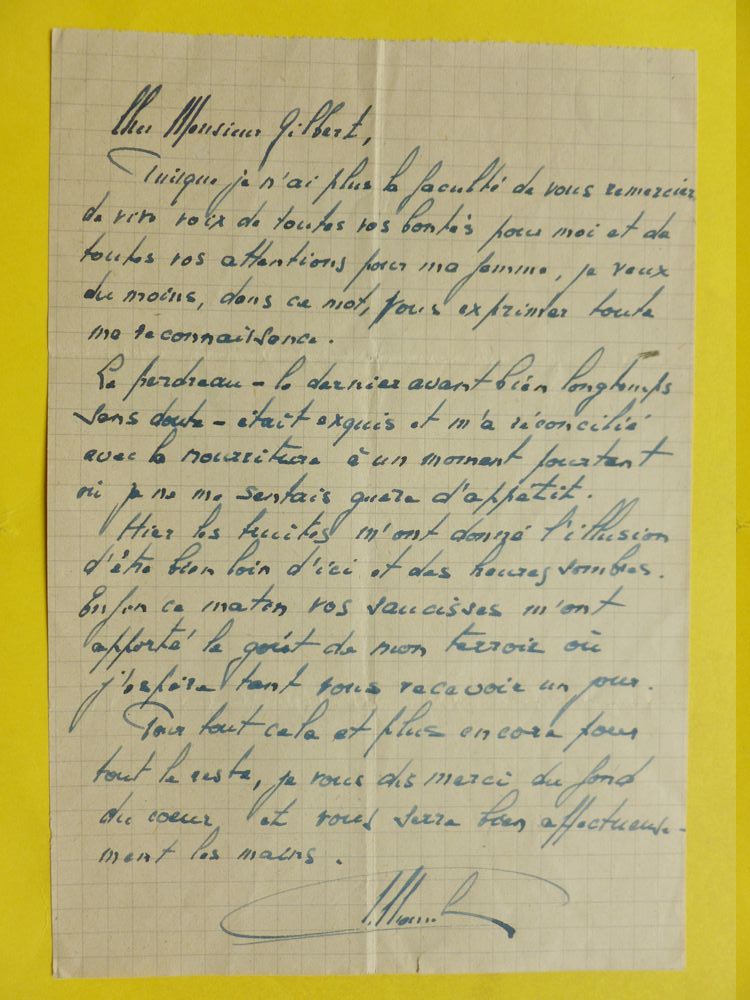 Cher Monsieur Gilbert,
Puisque je n'ai plus la faculté de vous remercier
de vive voix de toutes vos bontés pour moi et de
toutes vos attentions pour ma femme, je veux
du moins, dans ce mot, vous exprimer toute
ma reconnaissance.
Le perdreau - le dernier avant bien longtemps
sans doute - était exquis et m'a réconcilié
avec la nourriture à un moment pourtant
où je ne me sentais guère d'appétit.
Hier les truites m'ont donné l'illusion
d'être bien loin d'ici et des heures sombres.
Enfin ce matin vos saucisses m'ont
apporté le goût de mon terroir où
j'espère tant vous recevoir un jour.
Pour tout cela et plus encore pour
tout le reste, je vous dis merci du fond
du coeur et vous serre bien affectueuse-
ment les mains.